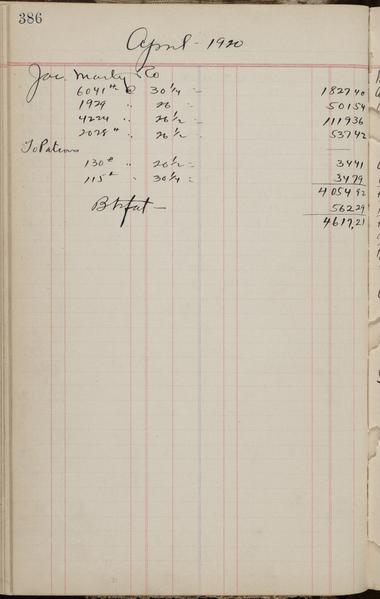 386
April - 1920
Jac. Marty Co
6041 " @ 30 1/4 = 1827 40
1929 " 26 = 501 54
4224 " 26 1/2 = 1119 36
2028 " " 26 1/2 = 537 42
To Patrons
130 " " 26 1/2 = 34 41
115 " " 30 1/4 = 34 79
4054 92
Btrfat — 562 29
4617.21